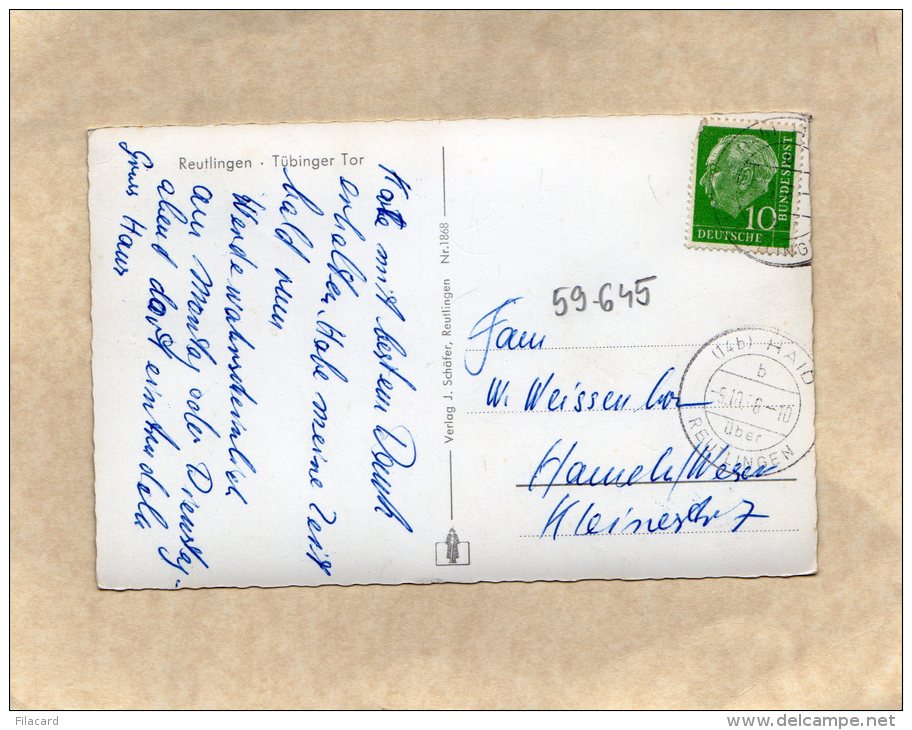 Reutlingen · Tübinger Tor
Karte mit bestem Dank
erhalten. Habe meine Zeit
bald rum
Werde wahrscheinlich
am Montag oder Dienstag
abend dort eintrudeln
Gruss Hans
Verlag J. Schäfer, Reutlingen Nr. 1868
10
DEUTSCHE
BUNDESPOST
59-645
Fam
W. Weissenbor
Hameln/Weser
Kleinestr 7
(14b) HAID
b
über
REUTLINGEN
Filacard
www.delcampe.net